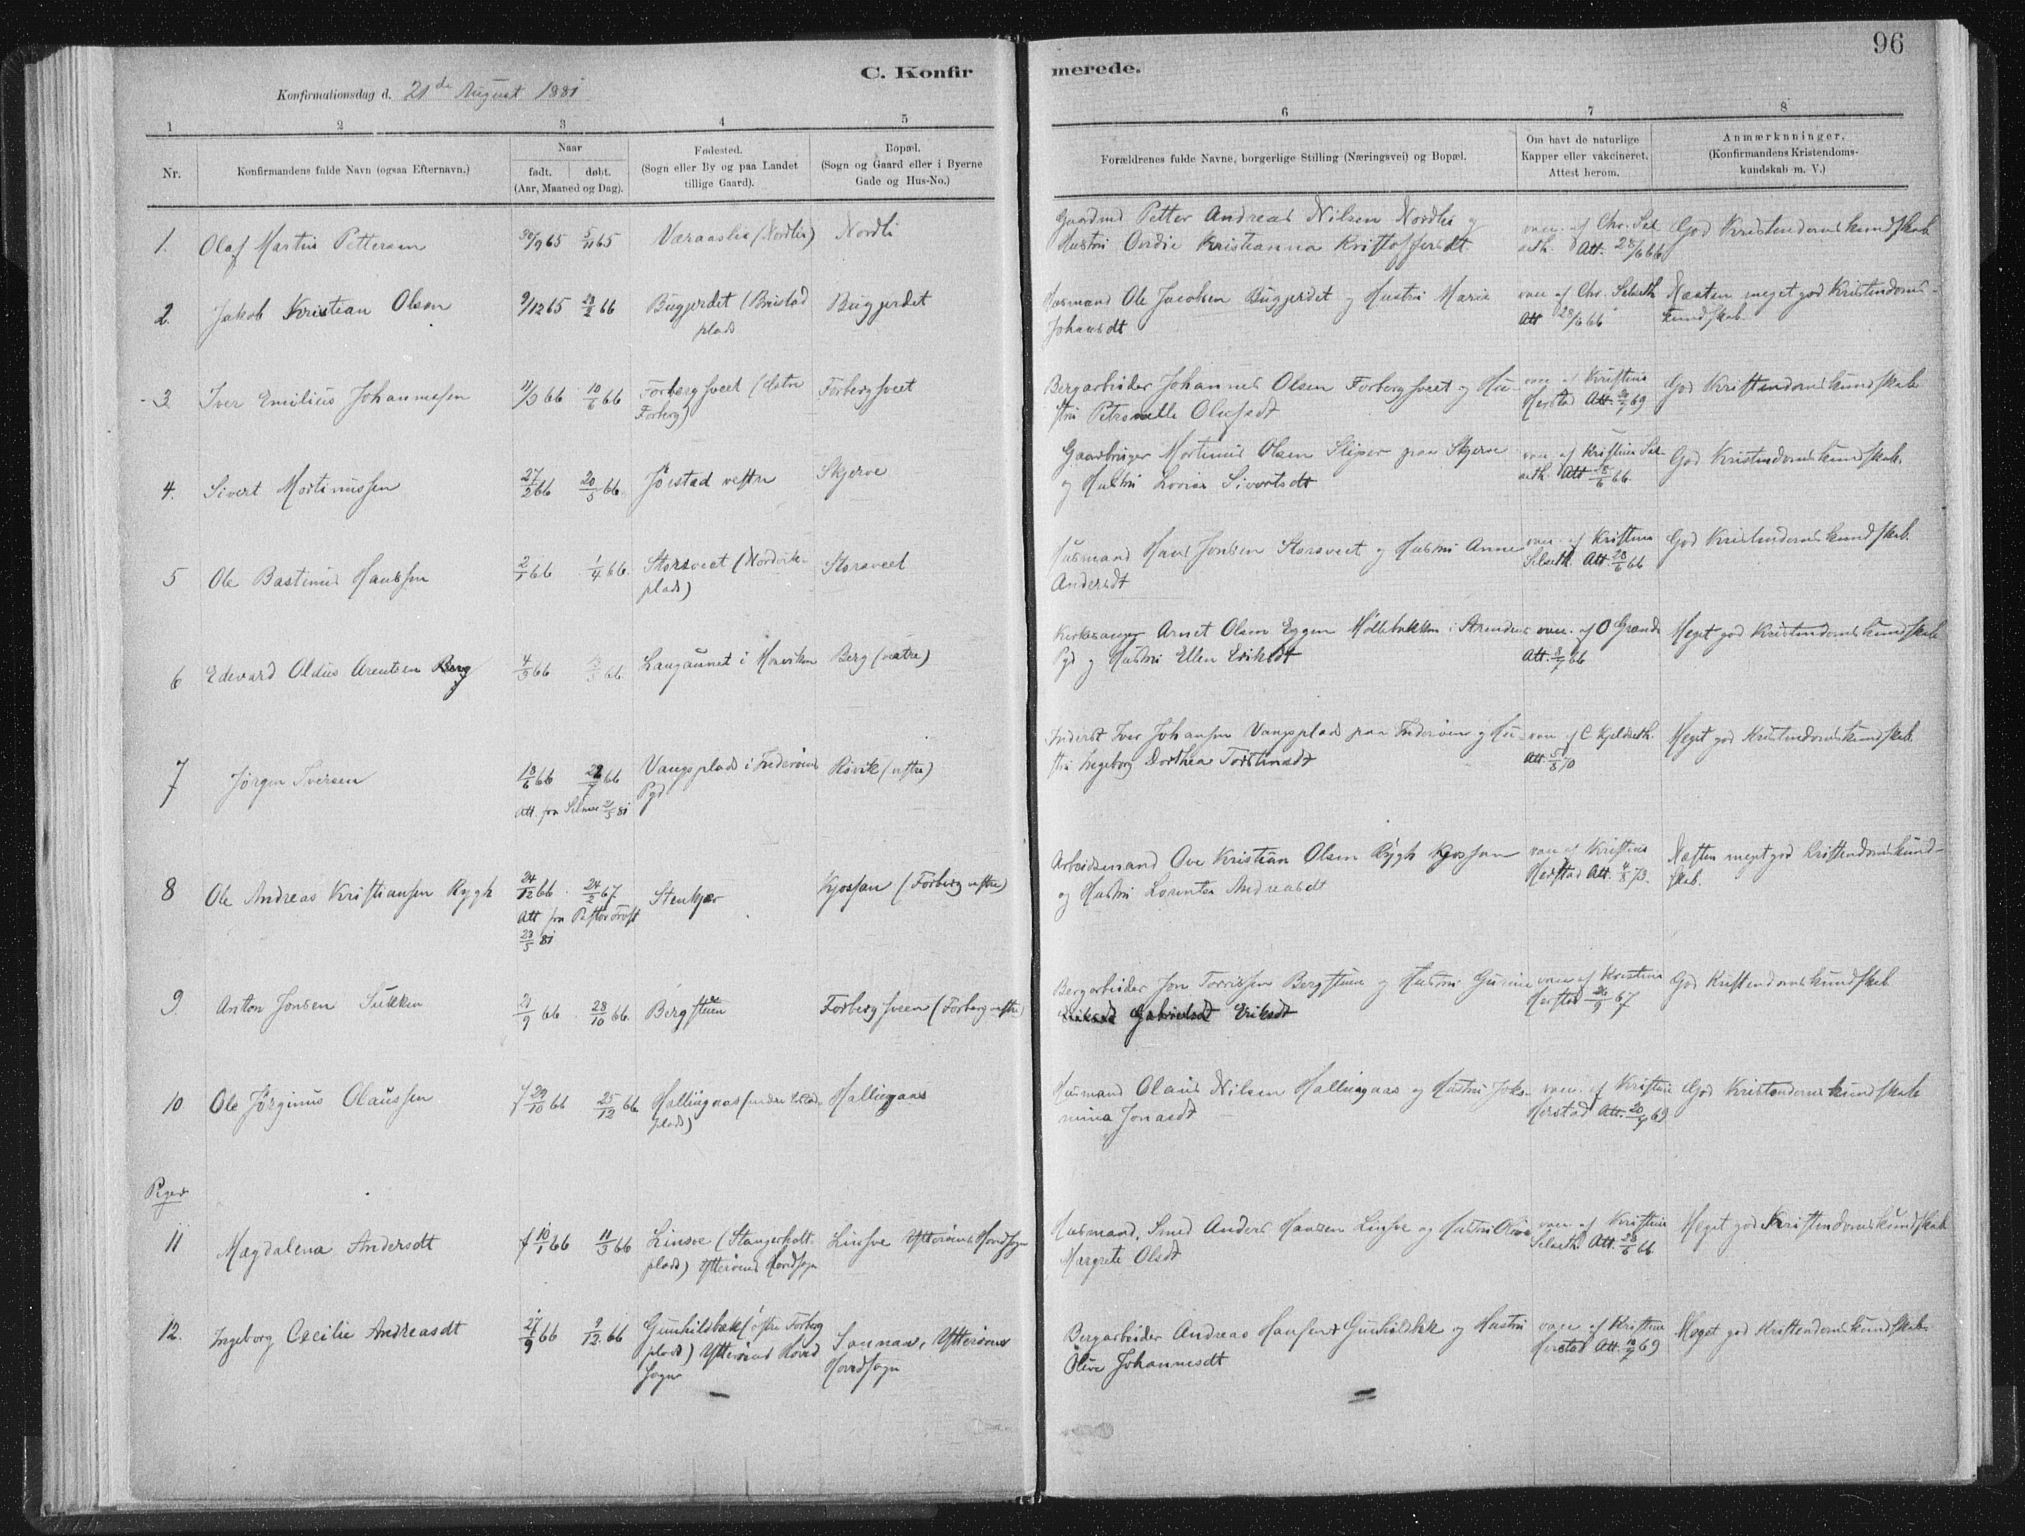 96
C. Konfirmerede.
Konfirmationsdag d. 21de August 1881
1 2 3 4 5 6 7 8
Nr.
Konfirmandens fulde Navn (ogsaa Efternavn.)
Naar
født. døbt.
(Aar, Maaned og Dag).
Fødested.
(Sogn eller By og paa Landet
tillige Gaard).
Bopæl.
(Sogn og Gaard eller i Byerne
Gade og Hus-No.)
Forældrenes fulde Navne, borgerlige Stilling (Næringsvei) og Bopæl.
Om havt de naturlige
Kapper eller vakcineret.
Attest herom.
Anmærkninger.
(Konfirmandens Kristendoms-
kundskab m. V.)
1. Olaf Martin Pettersen 30/9 65 5/11 65 Væraaslia (Nordli) Nordli
Gaardmd Petter Andreas Nilsen Nordli og
Hustri Ovedie Kristianna Kristoffersdt
vacc. af Chr. Sel
seth. Att. 28/6 66
God Kristendomskundskab
2. Jakob Kristian Olsen 9/12 65 /2 66 Bugjerdet (Brustad
plads
Bugjerdet
Husmand Ole Jacobsen Bugjerdet og Hustri Maria
Johansdt
vacc af Chr. Selseth
Att 28/6 66
Næsten meget god Kristendoms-
kundskab.
3 Iver Emilius Johannesen 11/3 66 10/6 66 Forbergsveet (østre
Forberg)
Forbergsveet
Bergarbeider Johannes Olsen Forbergsveet og Hu-
stri Petronelle Olufsdt
vacc af Kristine
Herstad Att. 69
God Kristendomskundskab
4. Sivert Mortinussen 27/2 66 20/5 66. Jøistad vestre Skjerve
Gaardbruger Mortinus Olsen Slipper paa Skjerve
og Hustri Lovise Sivertsdt
vac. af Kristine Sel-
seth. Att 28/6 66
God Kristendomskundskab.
5 Ole Bastinus Hanssen 2/1 66 1/4 66. Storsveet (Nordvik-
plads)
Storsveet
Husmand Hans Jonsen Storsveet og Hustri Anne
Andersdt
vac. af Kristine
Selseth. Att. 28/6 66
God Kristendomskundskab.
6 Edevard Oldus Arentsen Berg 4/3 66 66 Langaunet i Morviken Berg (vestre)
Kirkesanger Arnet Olsen Eggen Møllebakken i Strindens
Pgd og Hustri Ellen Eriksdt
vac. af O Grande
Att. 8/7 66
Meget god Kristendomskundskab
7 Jørgen Iversen 18/6 66 22/7 66 Vangsplads i Inderøens
Pgd
Røvik (vestre)
Att. fra 2/5 81
Inderst Iver Johansen Vangsplads paa Inderøen og Hu-
stri Ingeborg Dorthea Torstinsdt
vac. af C Kjeldseth.
Att. 5/8 70
Meget god Kristendomskundskab.
8 Ole Andreas Kristiansen Rygh 24/12 66. 24/2 67 Stenkjær Kjossan (Forberg vestre)
Att fra Pastor
23/5 81
Arbeidsmand Ove Kristian Olsen Rygh Kjossan
og Hustri Lorentse Andreasdt
vac af Kristine
Herstad Att. 4/8 73.
Næsten meget god Kristendomskund-
skab.
9 Anton Jonsen Sukken 21/9 66 28/10 66. Bergstuen Forbergsveen (Forberg vestre)
Bergarbeider Jon Torrissen Bergstuen og Hustri Gurine
Gabrielsdt Eriksdt
vac af Kristine
Herstad 26/9 67
God Kristendomskundskab
10 Ole Jørginus Olaussen f 29/10 66 25/12 66. Hallingaas (
plads)
Hallingaas
Husmand Olaus Nilsen Hallingaas og Hustri Joha-
mina Jonasdt
vacc. af Kristine
Herstad Att. 69
God Kristendomskundskab
Piger
11 Magdalena Andersdt f 10/1 66 11/3 66 Linsve (Stangerholt-
plads) Ytterøens Hovedsogn
Linsve Ytterøens Hovedsogn
Husmand, Smed Anders Hansen Linsve og Hustri Olive
Margrete Olsdt
vacc af Kristine
Selseth. Att. 28/6 66
Meget god Kristendomskundskab
12. Ingeborg Cæcilie Andreasdt 27/9 66 9/12 66 Gunhildsbæk (østre Forberg
plads) Ytterøens Hoved
sogn
Sannan, Ytterøens
Hovedsogn
Bergarbeider Andreas Hansen Gunhildbæk og Hustri
Olive Johannesdt
vacc af Kristine
Herstad Att. 69
Meget god Kristendomskundskab